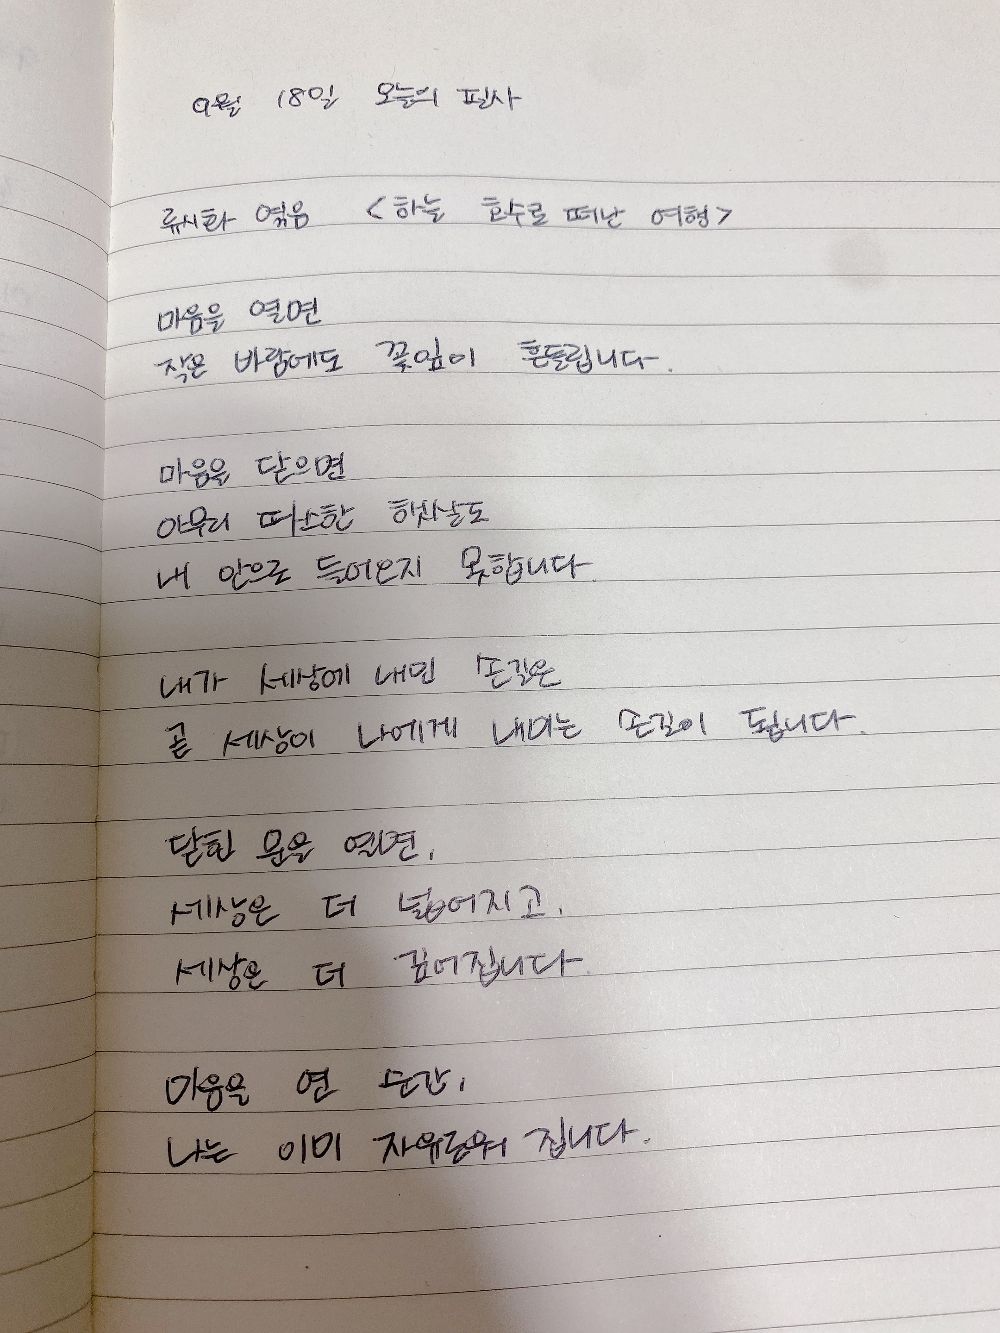 9월 18일 오늘의 필사
류시화 엮음 <하늘 호수로 떠난 여행>
마음을 열면
작은 바람에도 꽃잎이 흔들립니다.
마음을 닫으면
아무리 따스한 햇살도
내 안으로 들어오지 못합니다.
내가 세상에 내민 손길은
곧 세상이 나에게 내미는 손길이 됩니다.
닫힌 문을 열면,
세상은 더 넓어지고,
세상은 더 깊어집니다.
마음을 연 순간,
나는 이미 자유로워 집니다.